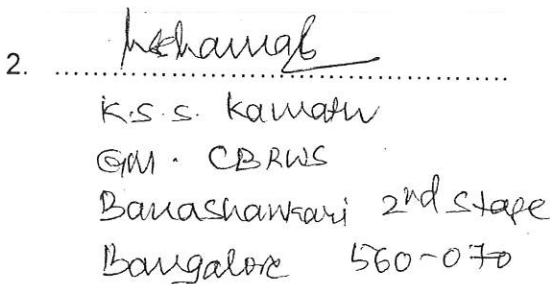 2.
K.S.S. Kamath
GM. CBRWS
Banashankari 2nd Stage
Bangalore 560-070